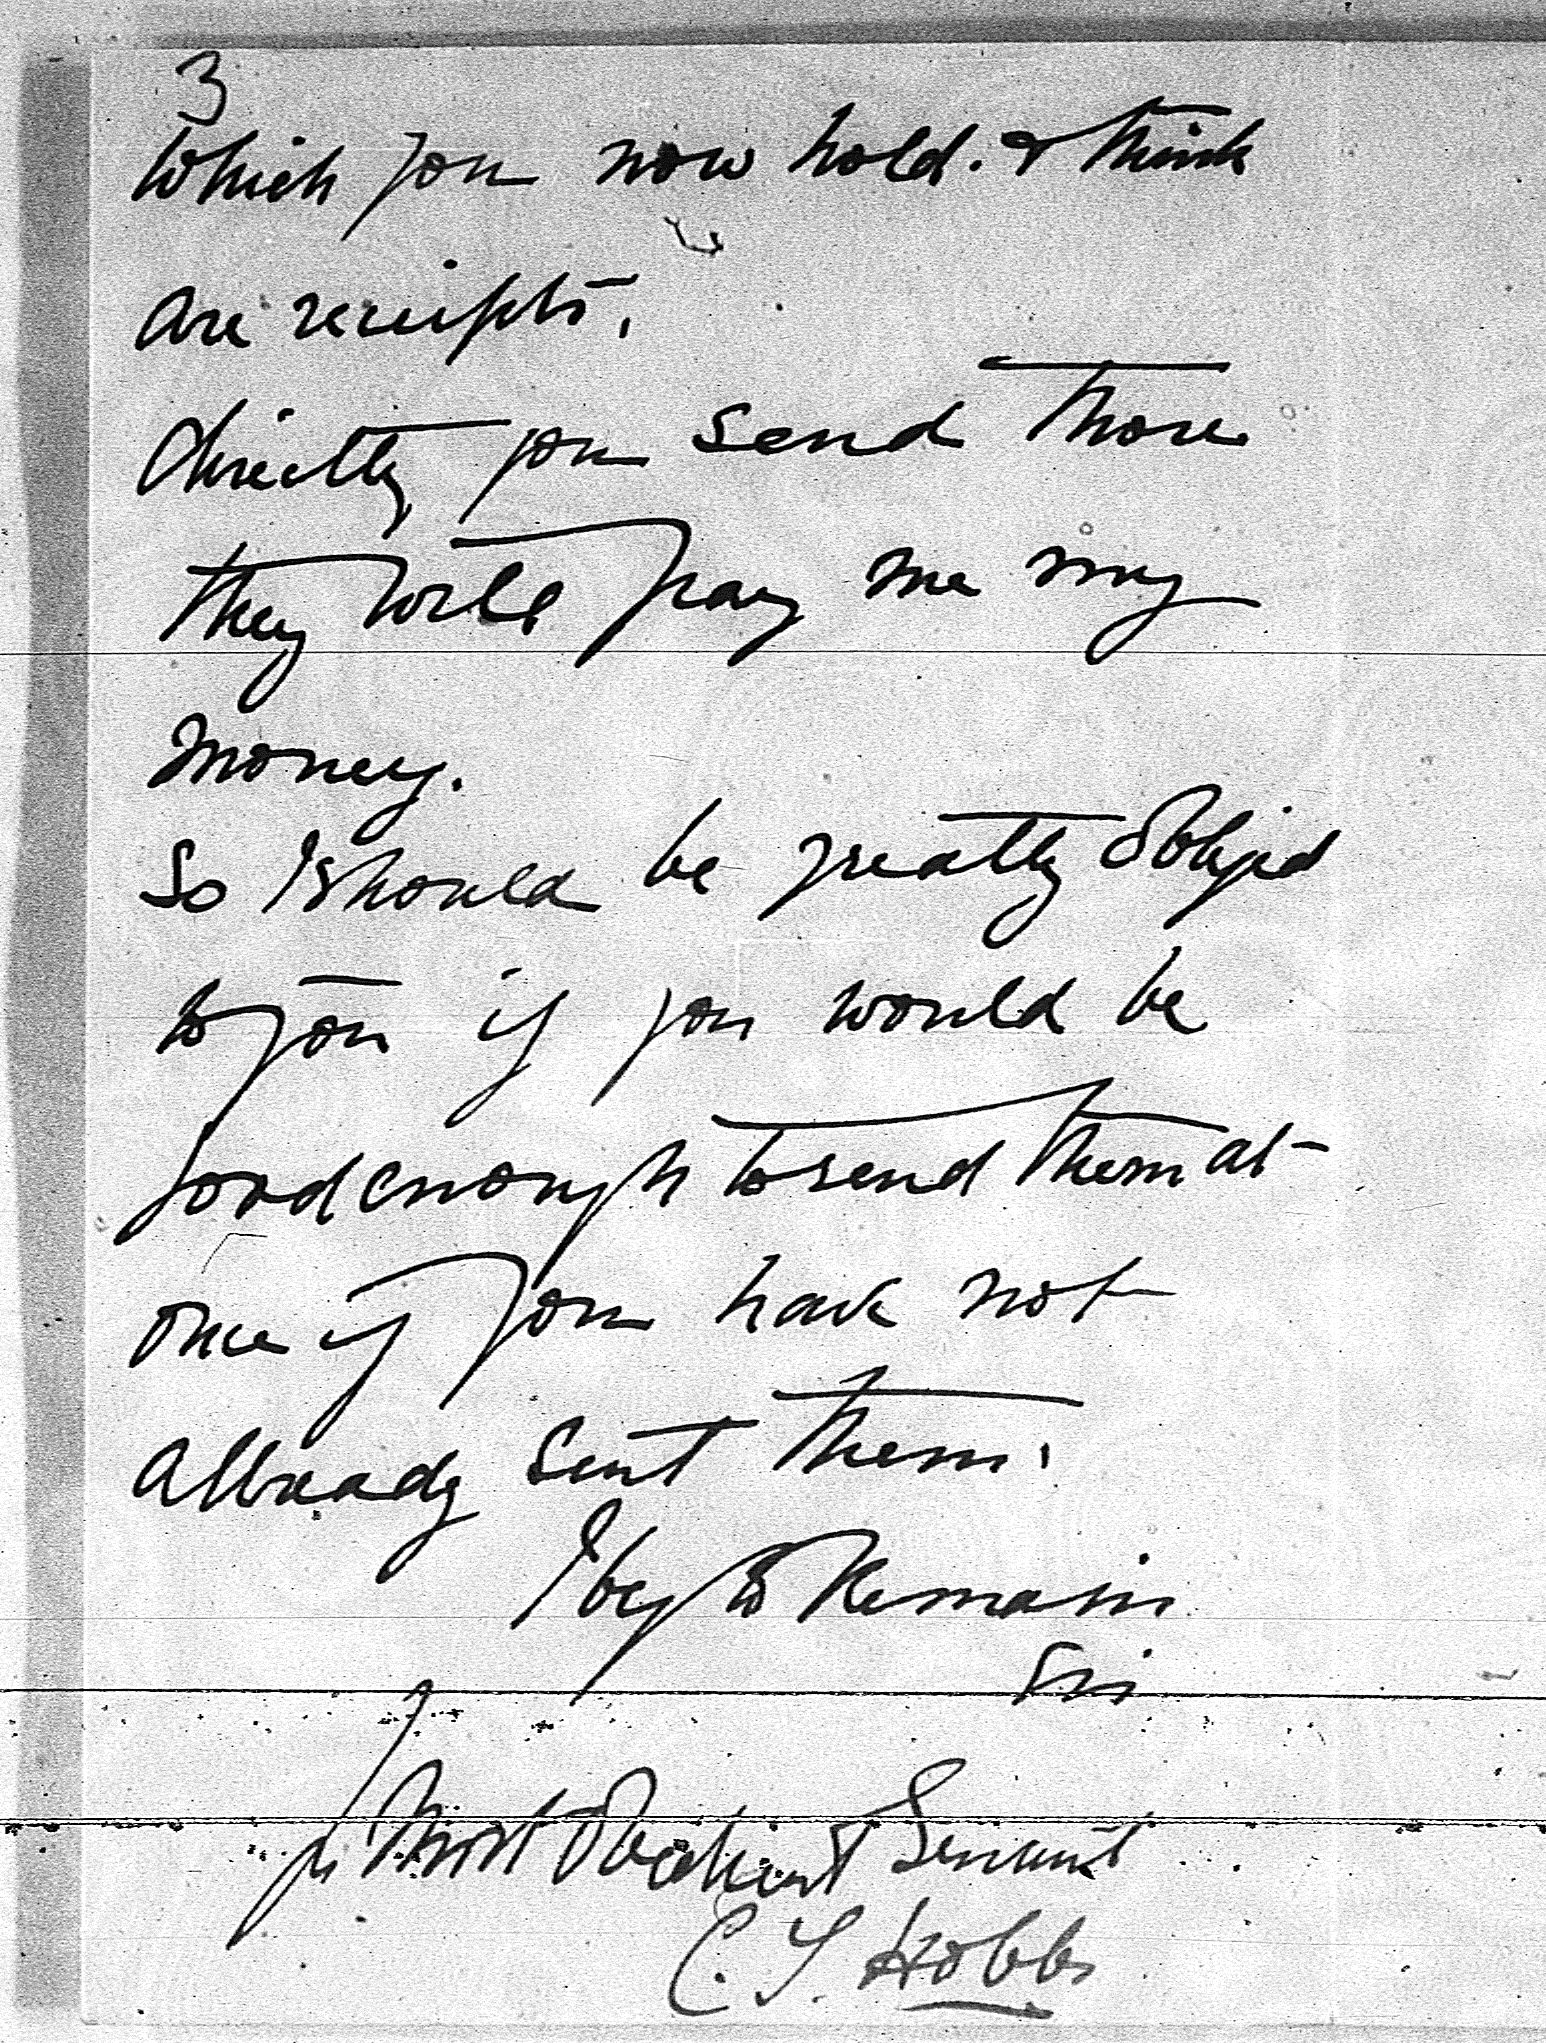 3
which you now hold. & think
are receipts,
directly you send those
they will pay me my
money.
So I should be greatly obliged
to you if you would be
good enough to send them at
once if you have not
already sent them.
I beg to Remain
Sir
Yr Most Obedient Servant
C. S. Hobbs